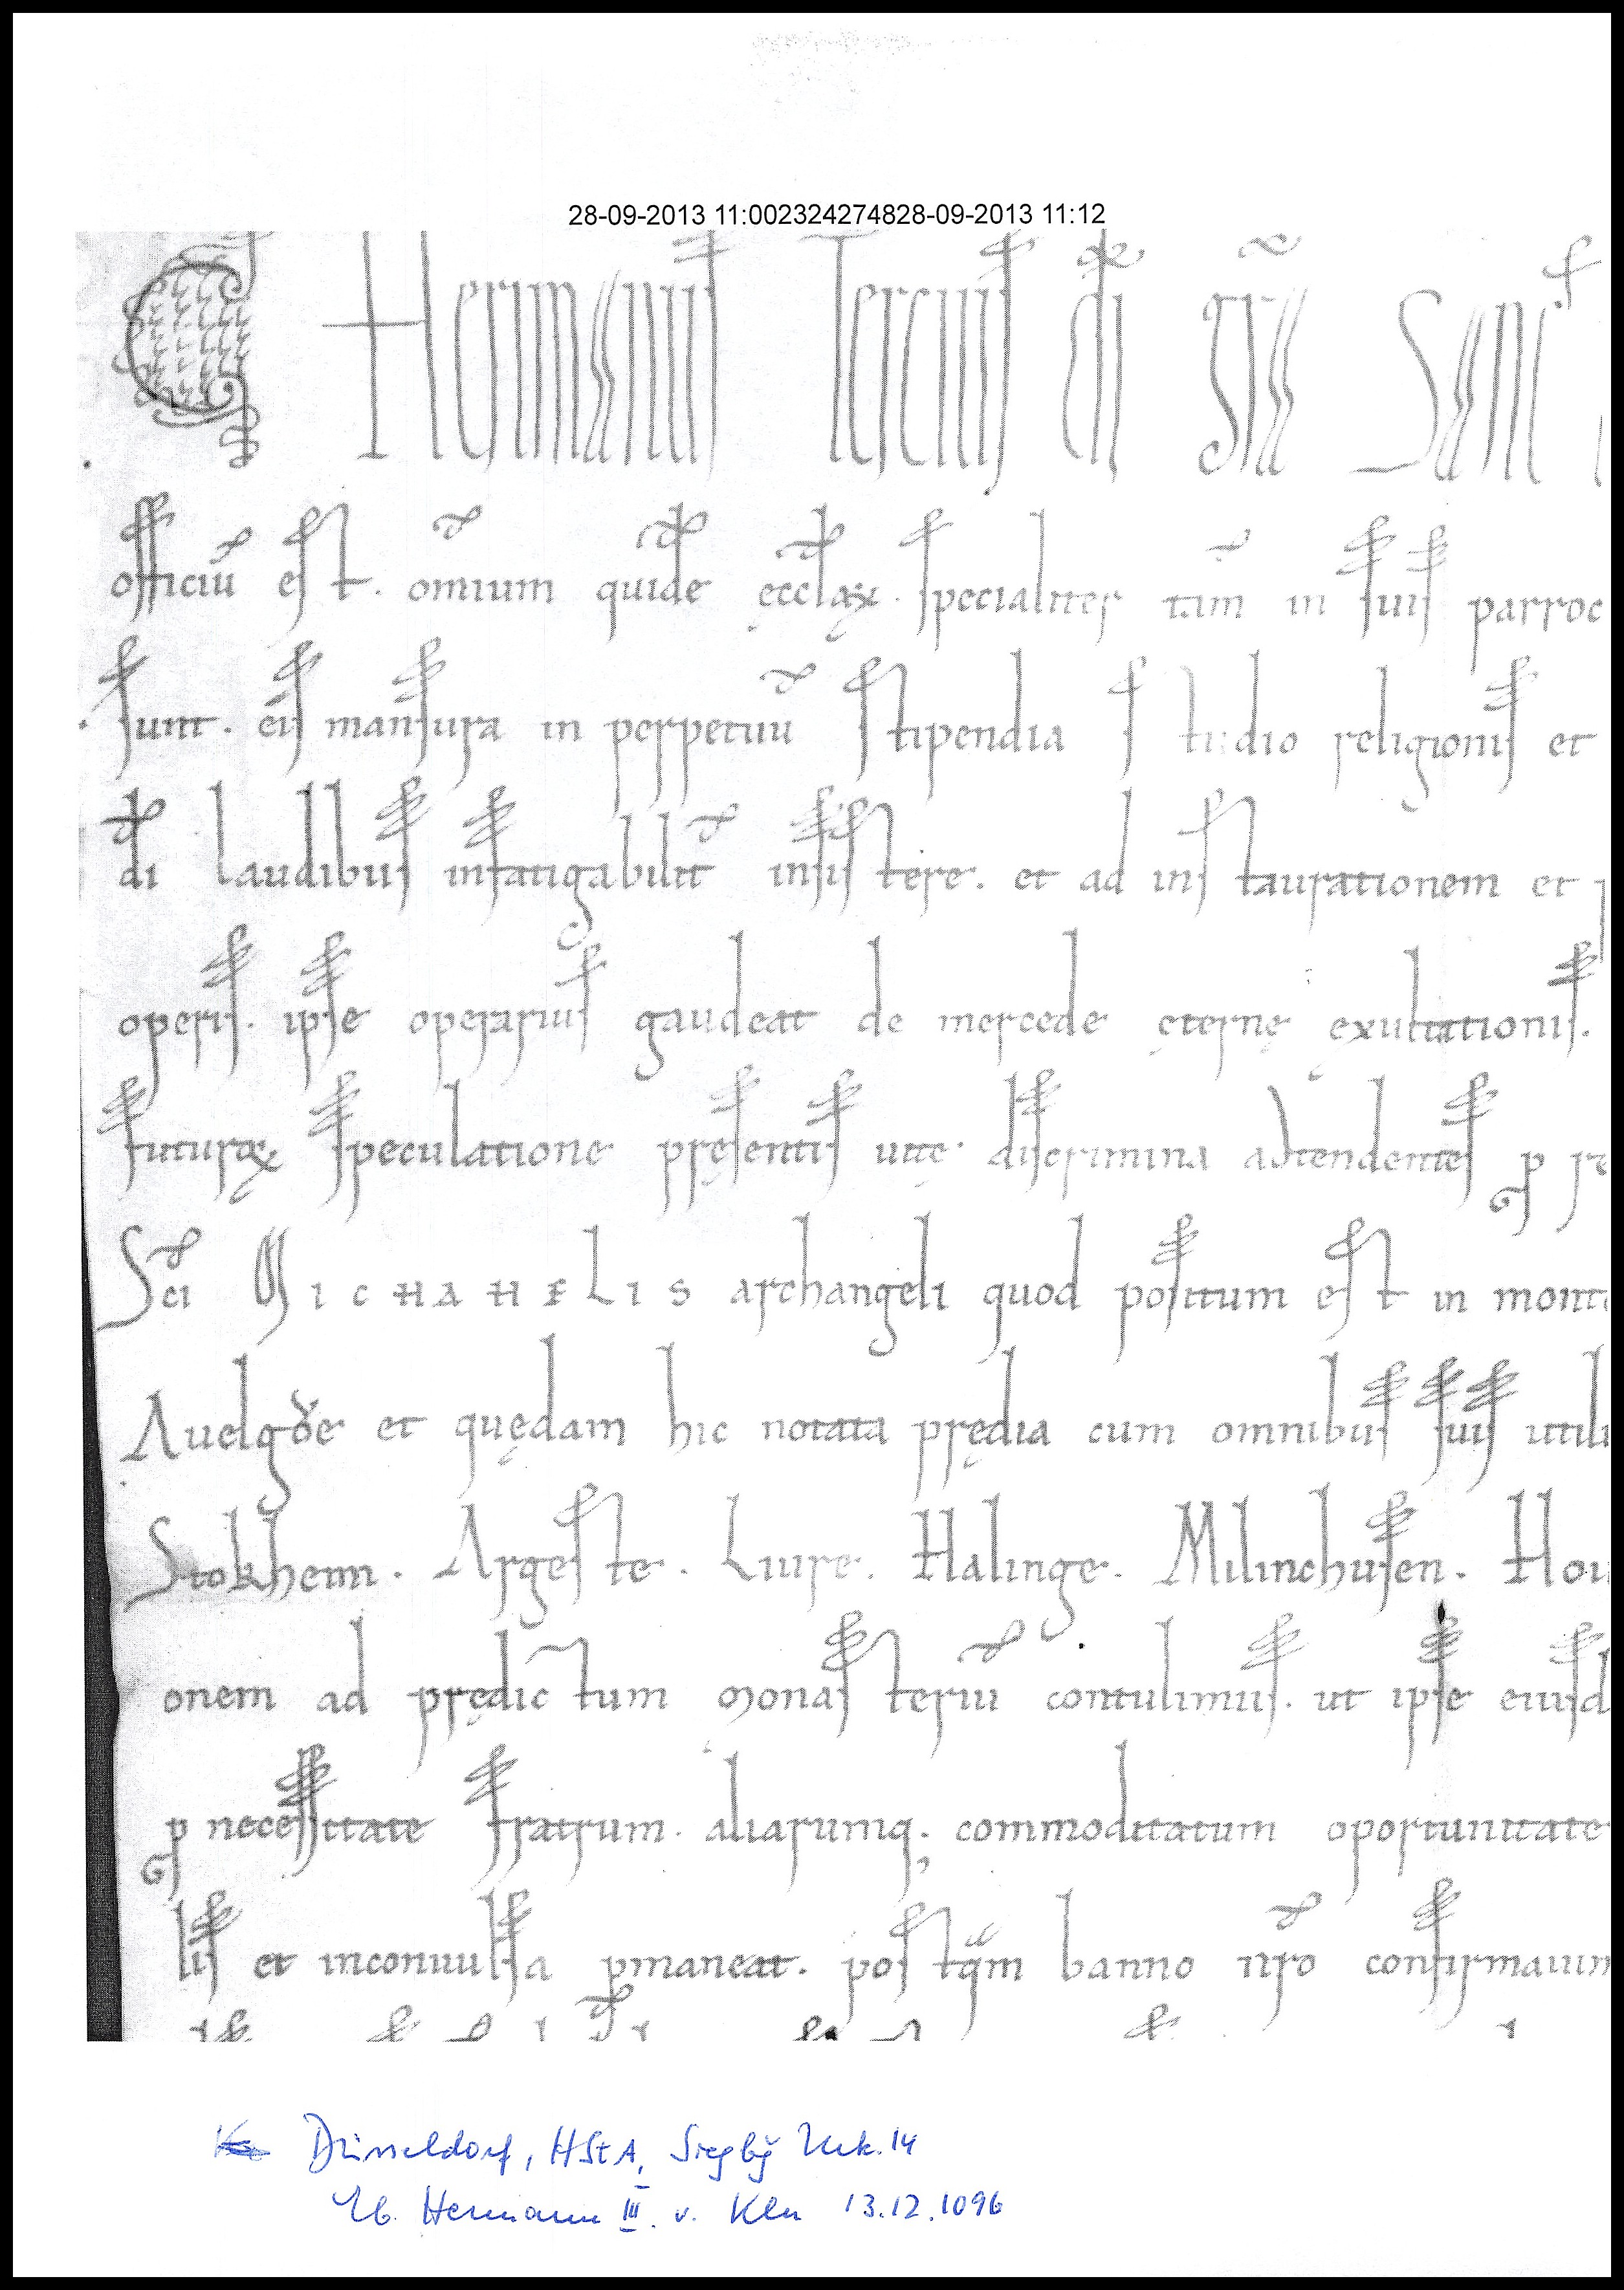 28-09-2013 11:002324274828-09-2013 11:12
C Herimannus Tercius di gra Sanc
officiu est. omium quide ęcclaꝝ. specialiter tam in suis parroc
sunt. eis mansura in perpetuu stipendia studio religionis et
di laudibus infatigabilit insistere. et ad instaurationem et
operis. ipse operarius gaudeat de mercede ęternę exultationis.
futuraꝝ speculatione pręsentis uitę discrimina adtendentes ꝓ re
Sci MICHAHELIS archangeli quod positum est in monte
Auelgoͮe et quędam hic notata prędia cum omnibus suis utili
Stokheim. Argeste. Liure. Halinge. Milinchusen. Hou
onem ad prędictum monasteriu contulimus. ut ipse eiusd
ꝓ necessitate fratrum. aliarumq; commoditatum oportunitate
lis et inconuulsa ꝑmaneat. postqm banno nro confirmauim
Düsseldorf, HStA, Siegbg Urk. 14
Eb. Hermann III. v. Kln 13.12.1096